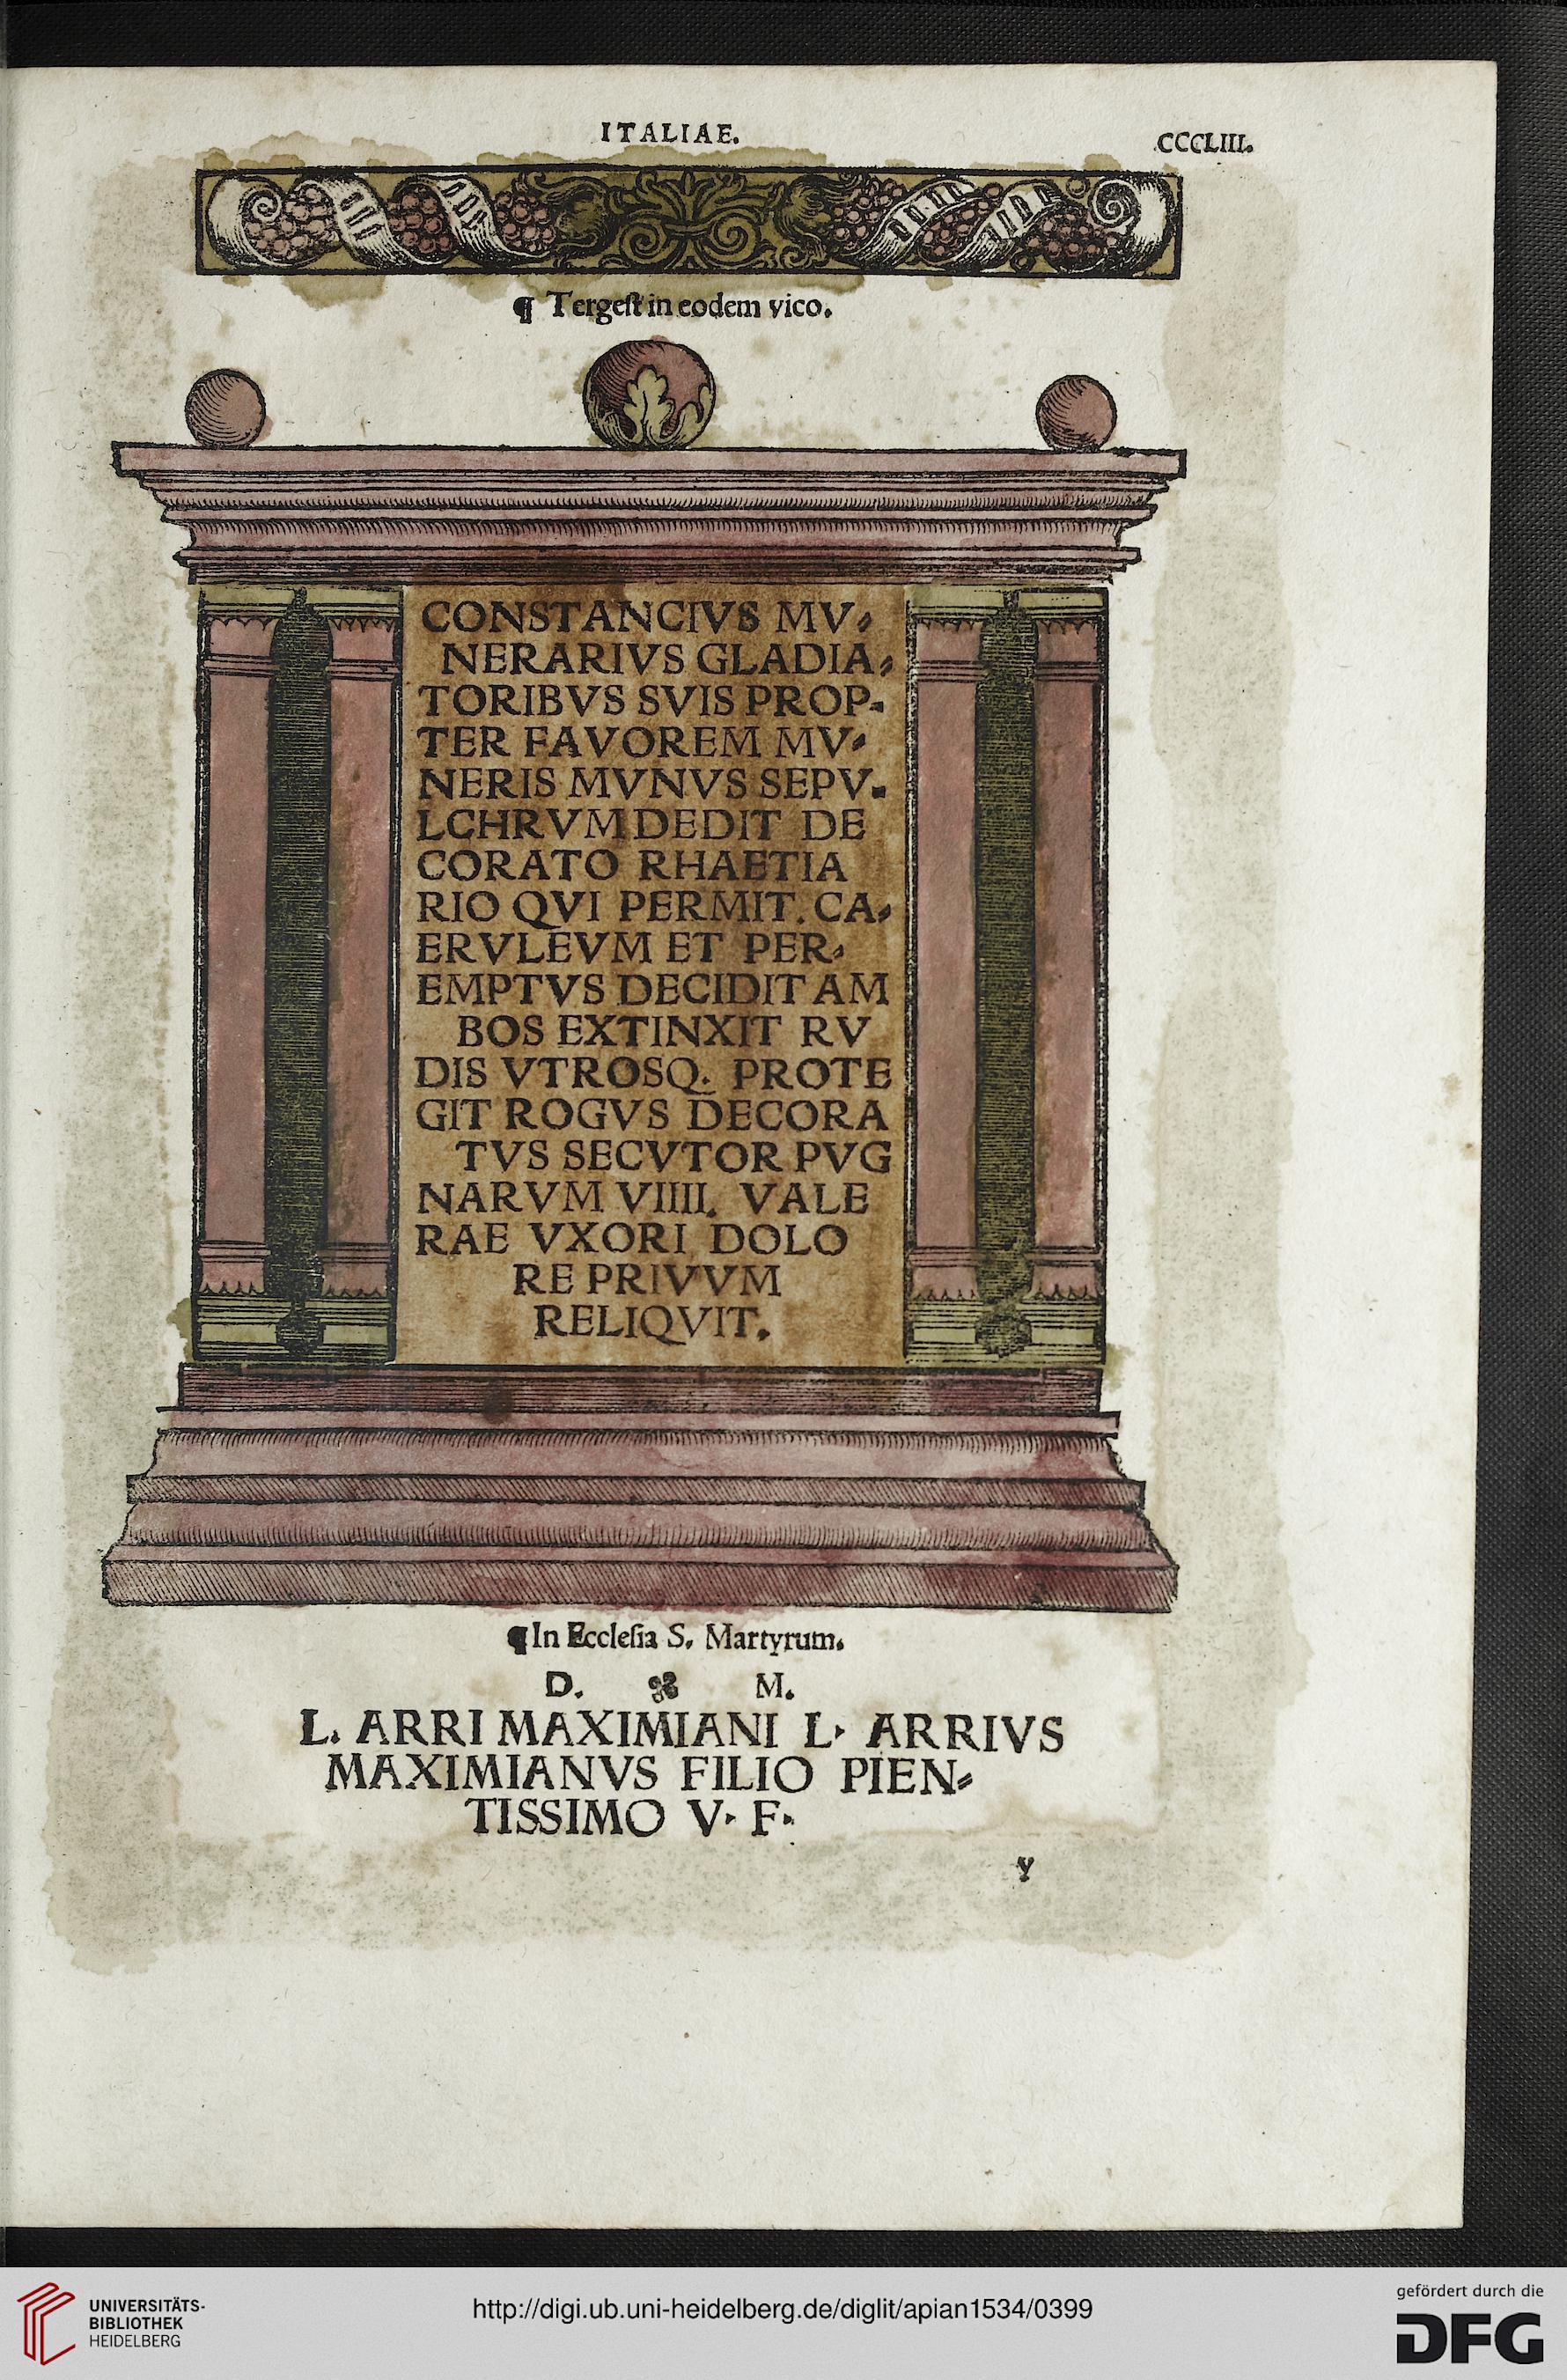 ITALIAE.
CCCLIII.
¶ Tergeſt in eodem vico.
CONSTANCIVS MV⸗
NERARIVS GLADIA⸗
TORIBVS SVIS PROP⸗
TER FAVOREM MV⸗
NERIS MVNVS SEPV⸗
LCHRVM DEDIT DE
CORATO RHAETIA
RIO QVI PERMIT. CA⸗
ERVLEVM ET PER⸗
EMPTVS DECIDIT AM
BOS EXTINXIT RV
DIS VTROSQ. PROTE
GIT ROGVS DECORA
TVS SECVTOR PVG
NARVM VIIII. VALE
RAE VXORI DOLO
RE PRIVVM
RELIQVIT.
¶ In Eccleſia S. Martyrum.
D. M.
L. ARRI MAXIMIANI L. ARRIVS
MAXIMIANVS FILIO PIEN⸗
TISSIMO V. F.
y
UNIVERSITÄTS-
BIBLIOTHEK
HEIDELBERG
http://digi.ub.uni-heidelberg.de/diglit/apian1534/0399
gefördert durch die
DFG